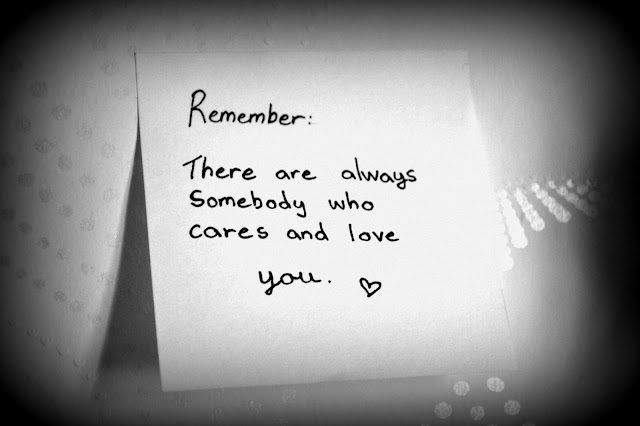 Remember:
There are always
Somebody who
cares and love
you. ♡